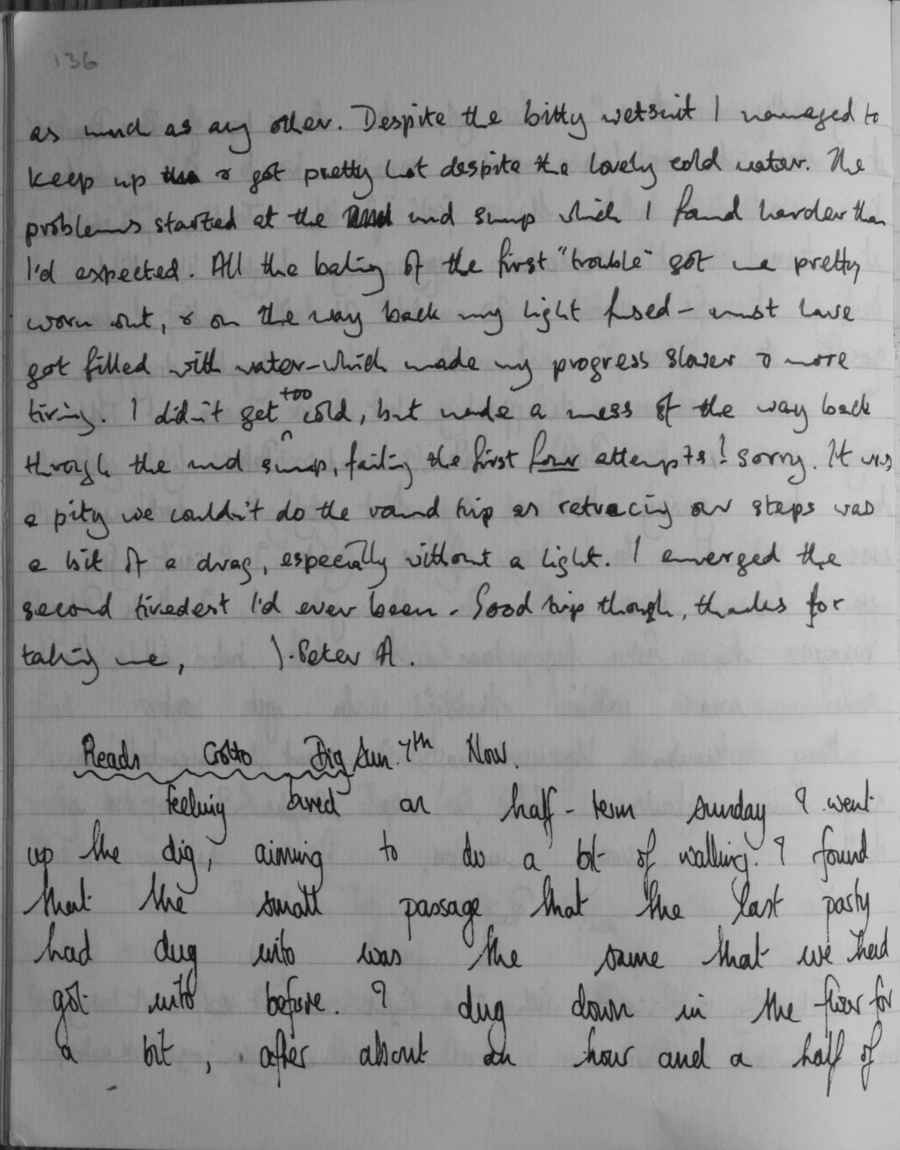 136
as much as any other. Despite the bitty wetsuit I managed to
keep up & got pretty hot despite the lovely cold water. The
problems started at the mud sump which I found harder than
I'd expected. All the baling of the first "trouble" got me pretty
worn out, & on the way back my light fused - must have
got filled with water - which made my progress slower & more
tiring. I didn't get too cold, but made a mess of the way back
through the mud sump, failing the first four attempts! Sorry. It was
a pity we couldn't do the round trip as retracing our steps was
a bit of a drag, especially without a light. I emerged the
second tiredest I'd ever been. Good trip though, thanks for
taking me, Peter A.
Reads Grotto Dig Sun. 7th Nov.
Feeling bored on half-term sunday I went
up the dig, aiming to do a bit of walling. I found
that the small passage that the last party
had dug into was the same that we had
got into before. I dug down in the floor for
a bit, after about an hour and a half of